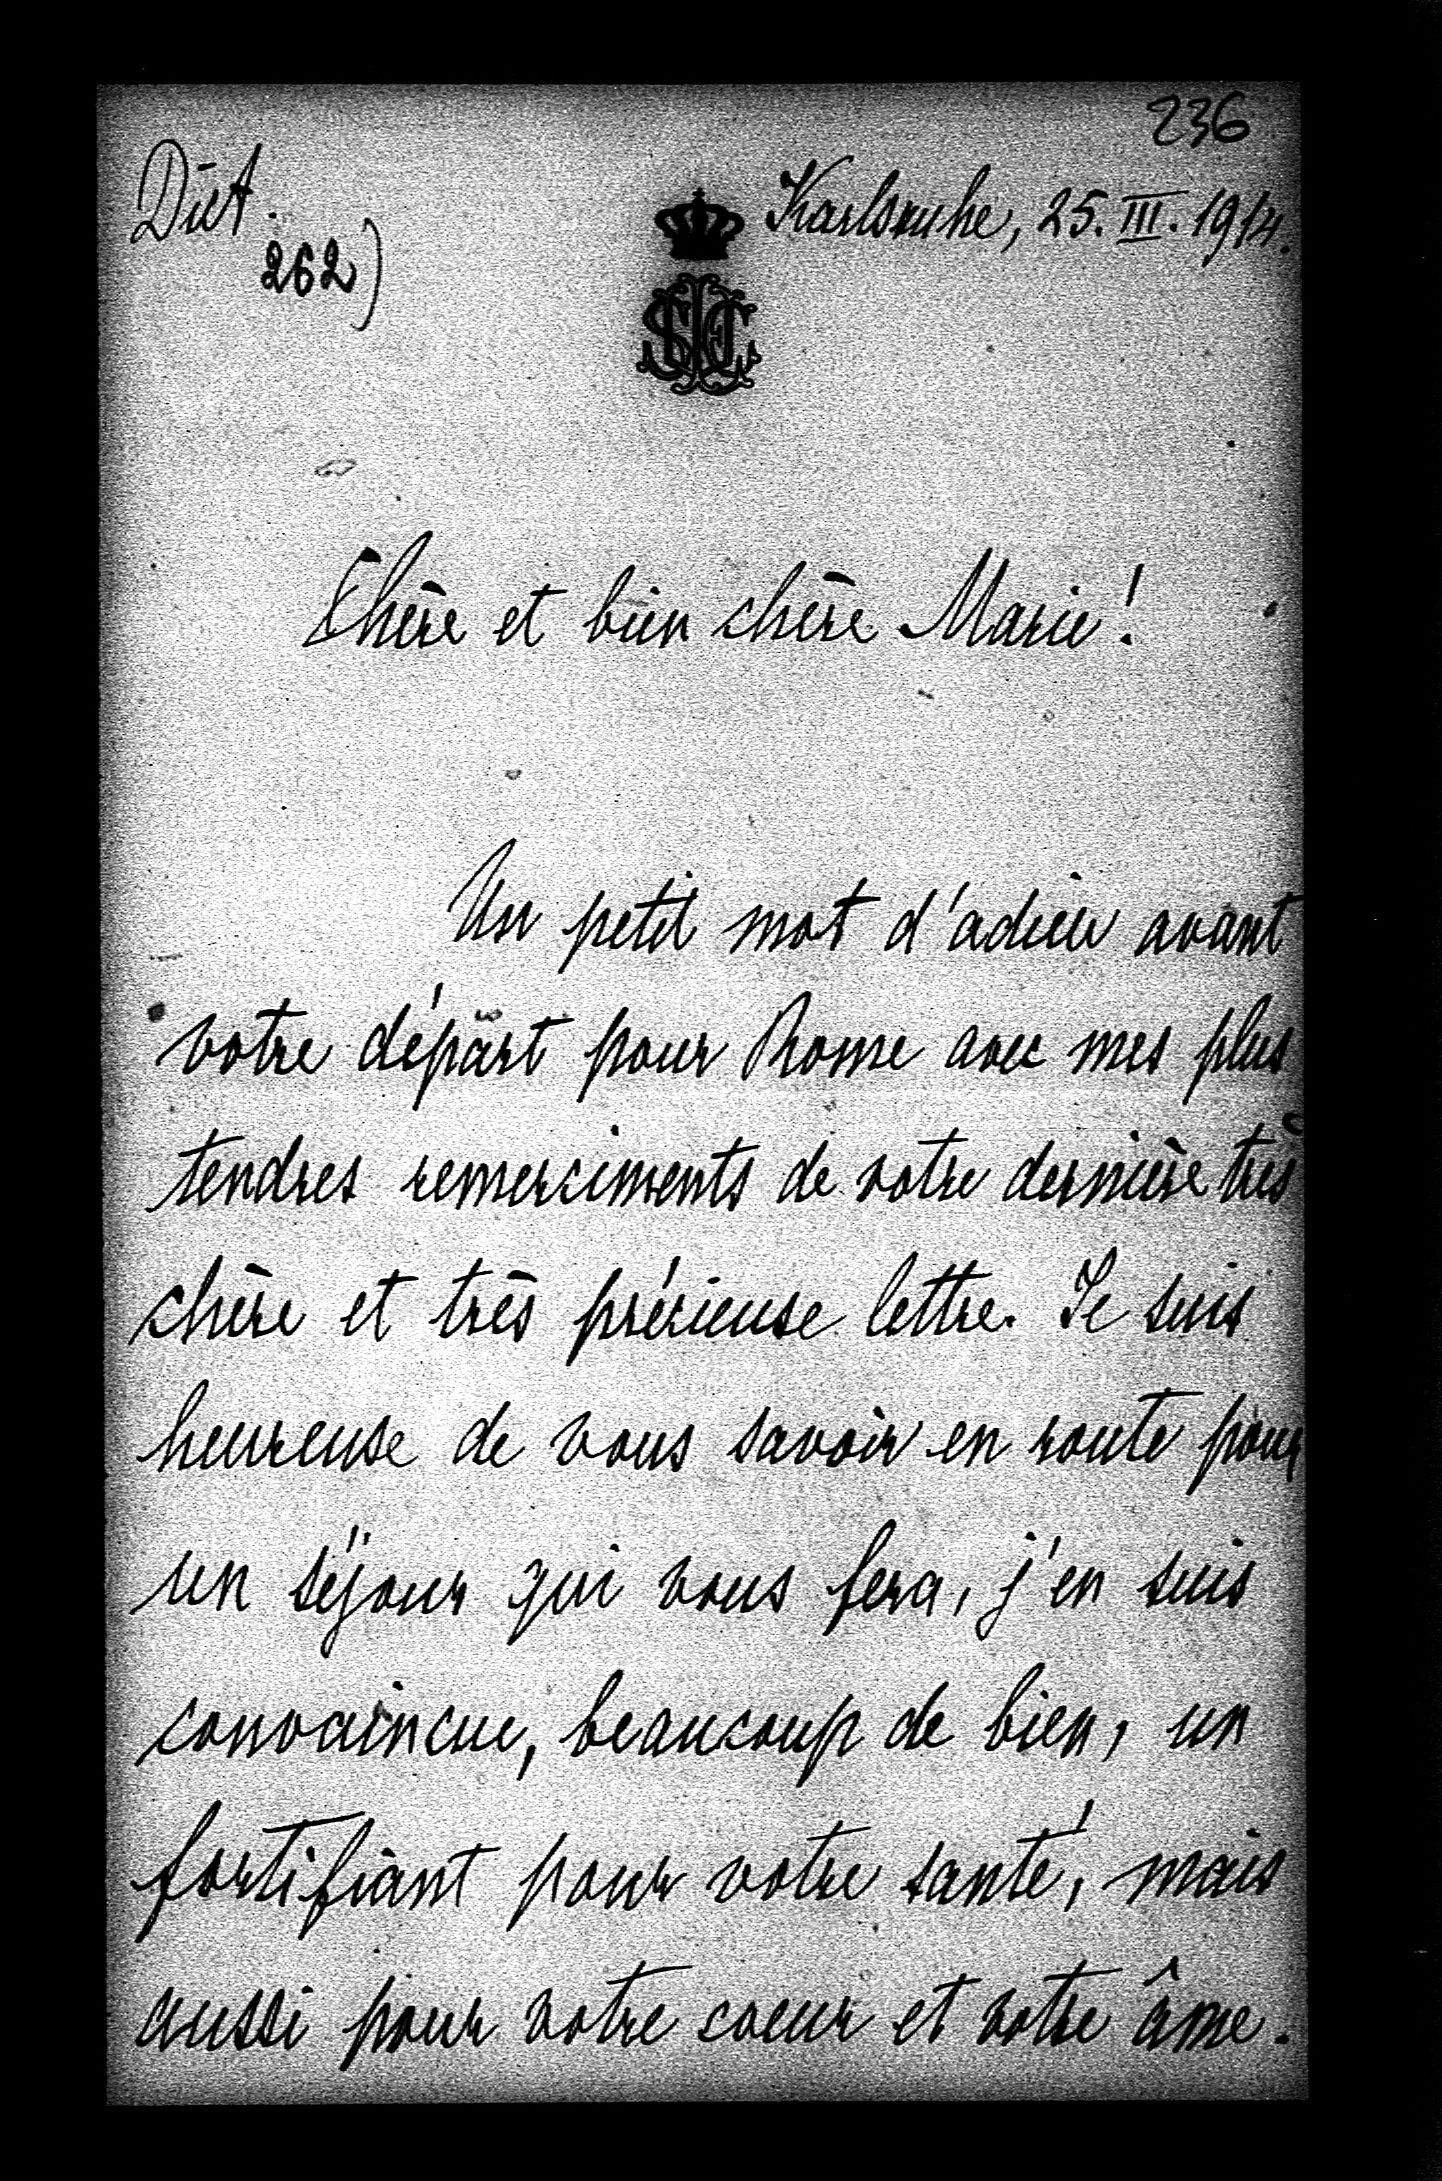 236
Dict.
Karlsruhe, 25. III. 1914.
262)
Chère et bien chère Marie!
Un petit mot d'adieu avant
votre départ pour Rome avec mes plus
tendres remerciments de votre dernière très
chère et très précieuse lettre. Je suis
heureuse de vous savoir en route pour
un séjour qui vous fera, j'en suis
convaincue, beaucoup de bien, un
fortifiant pour votre santé, mais
aussi pour votre coeur et votre âme.